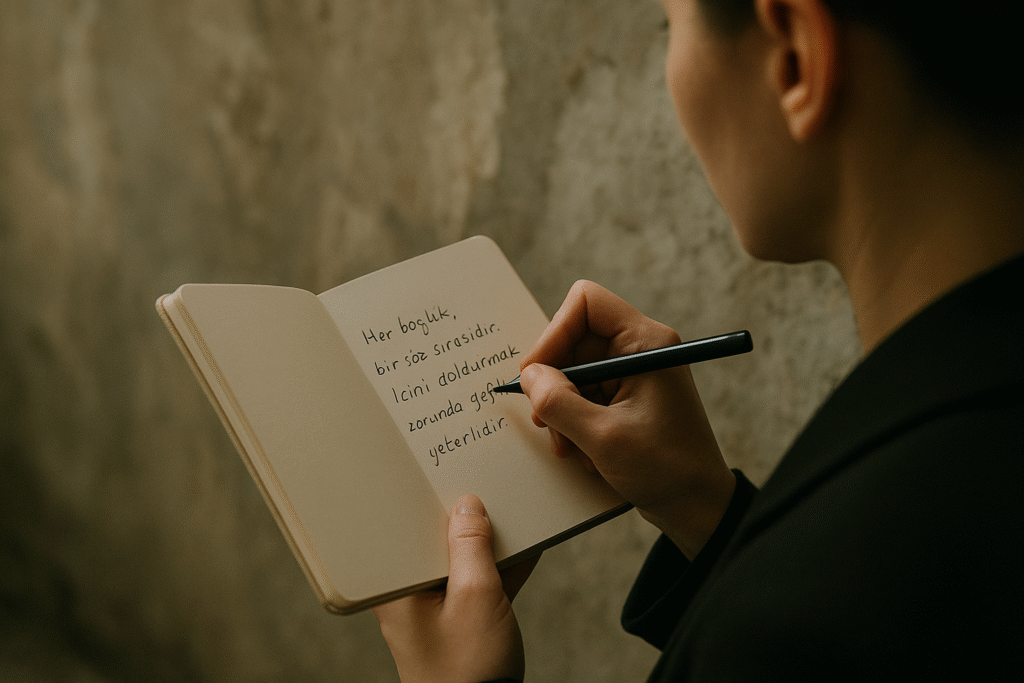 Her boğluk,
bir söz sırasıdır.
Icini doldurmak
zorunda
yeterlidir.